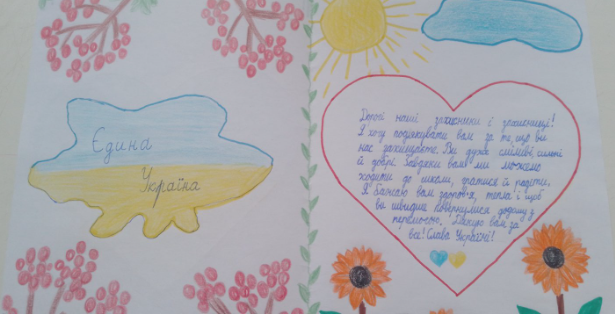 Єдина
Україна
Дорогі наші захисники і захисниці!
Я хочу подякувати вам за те, що ви
нас захищаєте. Ви дуже сміливі, сильні
й добрі. Завдяки вам ми можемо
ходити до школи, гратися й радіти.
Я бажаю вам здоров'я, тепла і щоб
ви швидше повернулися додому з
перемогою. Дякую вам за
все! Слава Україні!